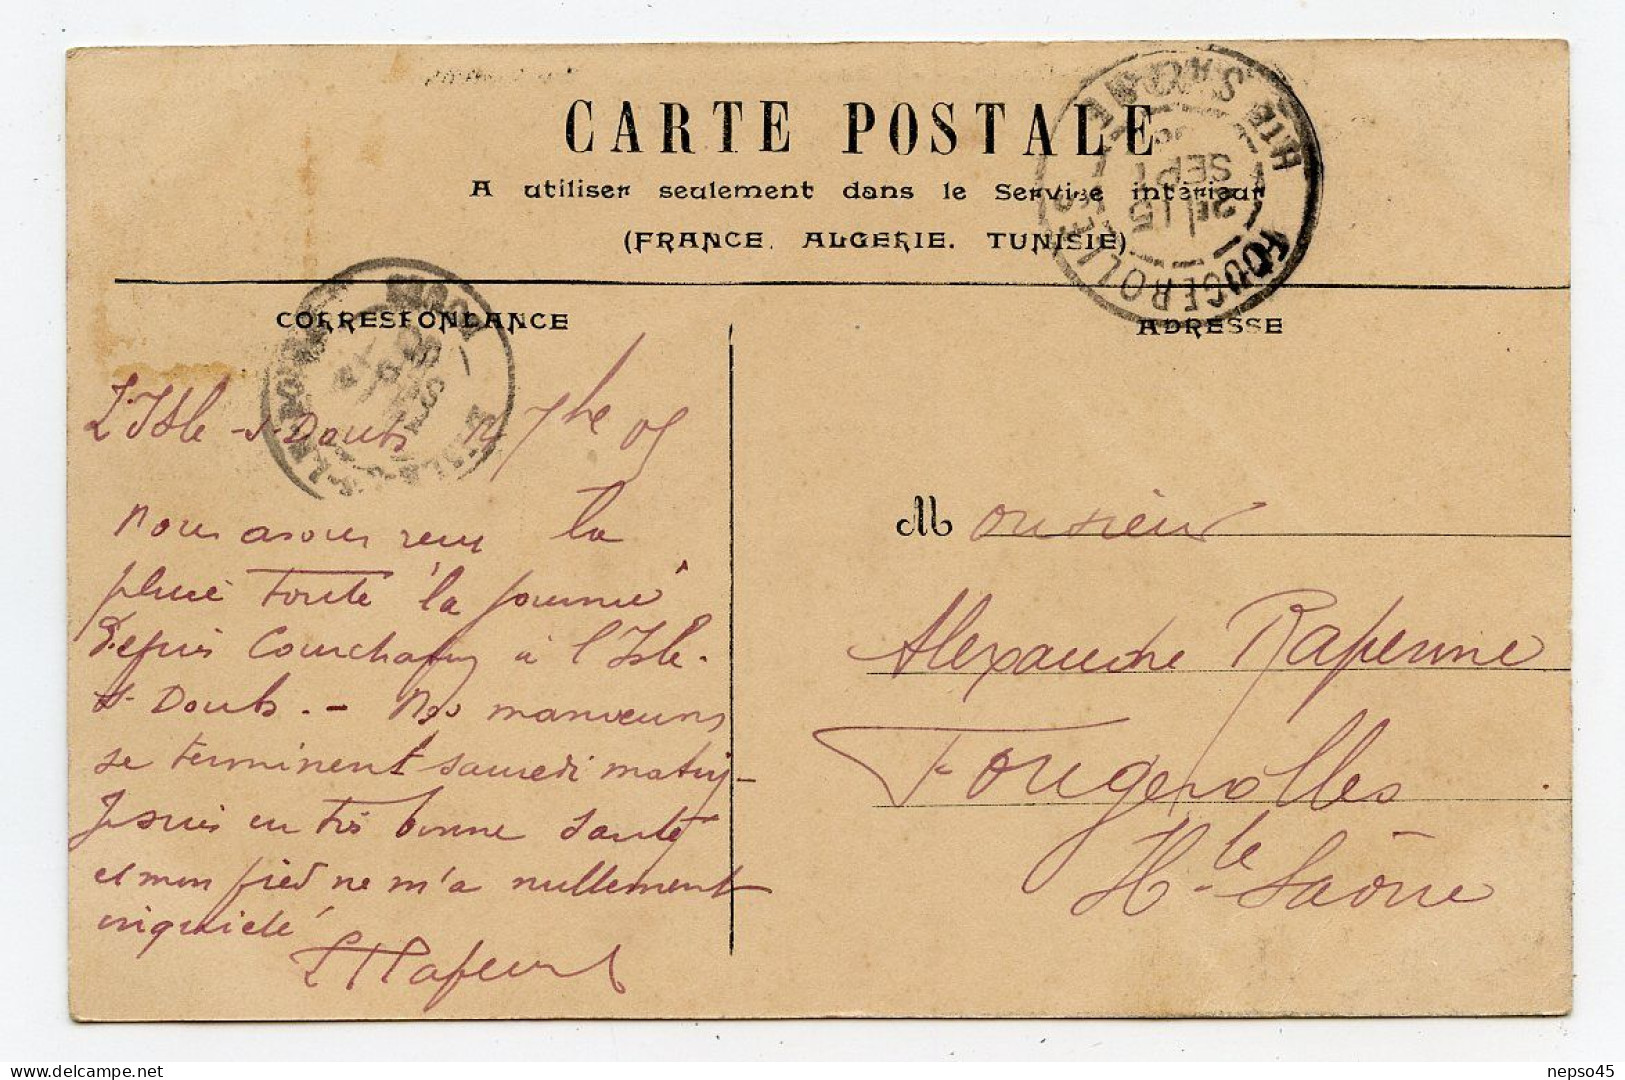 CARTE POSTALE
A utiliser seulement dans le Service intérieur
(FRANCE, ALGERIE, TUNISIE)
CORRESPONDANCE
ADRESSE
FOUGEROLLES
HTE SAONE
2E
15
SEPT
L'Isle-s-Doubs 14 7bre 05
Nous avons reçu la
pluie toute la journée
Depuis Courchapon à l'Isle-
s-Doubs. - Nos manœuvres
se terminent samedi matin -
Je suis en très bonne santé
et mon pied ne m'a nullement
inquiété
Monsieur
Alexandre Rapenne
Fougerolles
Hte Saône
nepso45